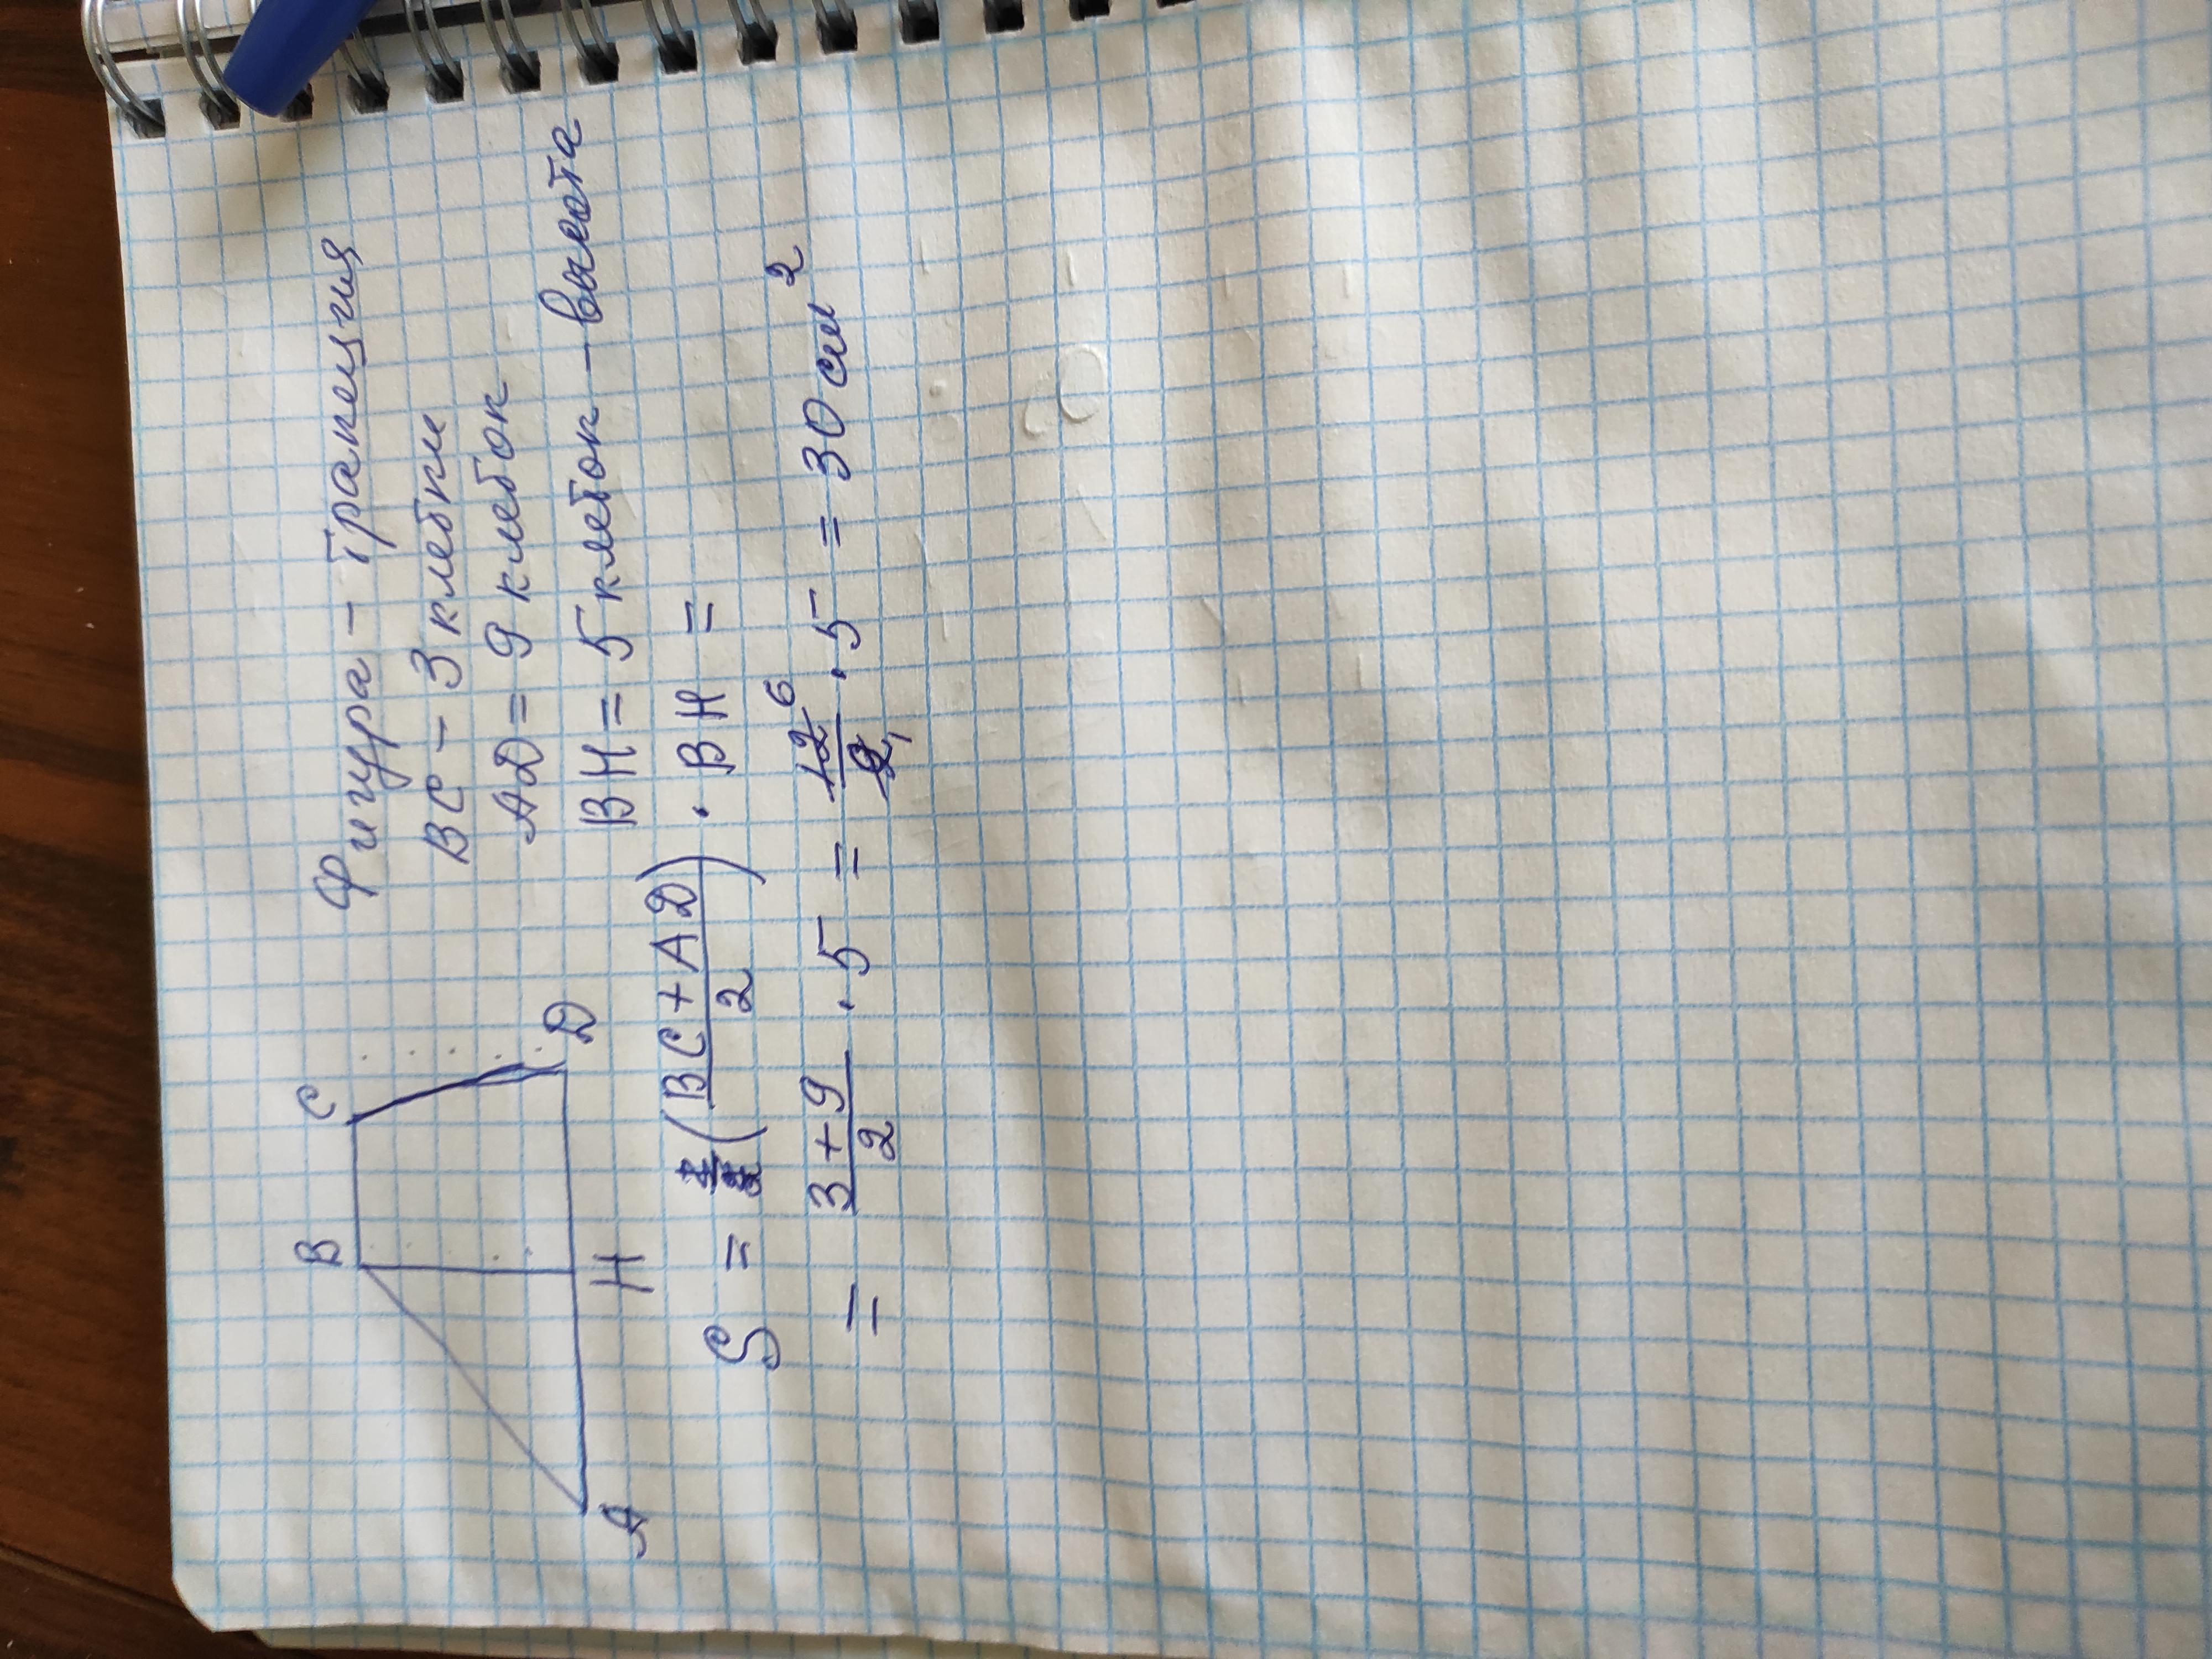 Фигура – трапеция
BC – 3 клетки
AD = 9 клеток
BH = 5 клеток – высота
B C
A H D
S = (BC + AD)/2 · BH =
= 3+9/2 · 5 = 12 6/2 1 · 5 = 30 см²